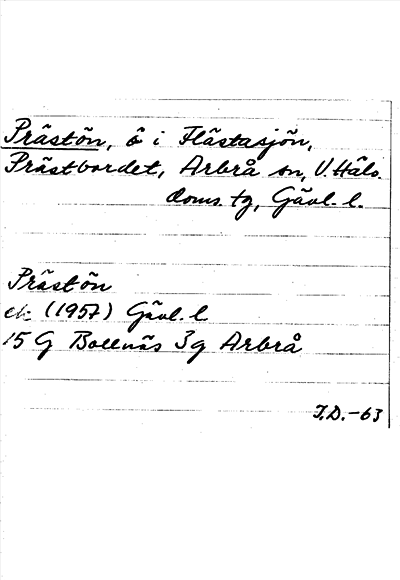 Prästön, ö i Flästasjön,
Prästbordet, Arbrå sn, V. Häls.
doms. tg, Gävl. l.
Prästön
ek (1957) Gävl. l
15 G Bollnäs 3g Arbrå
I.D.-63